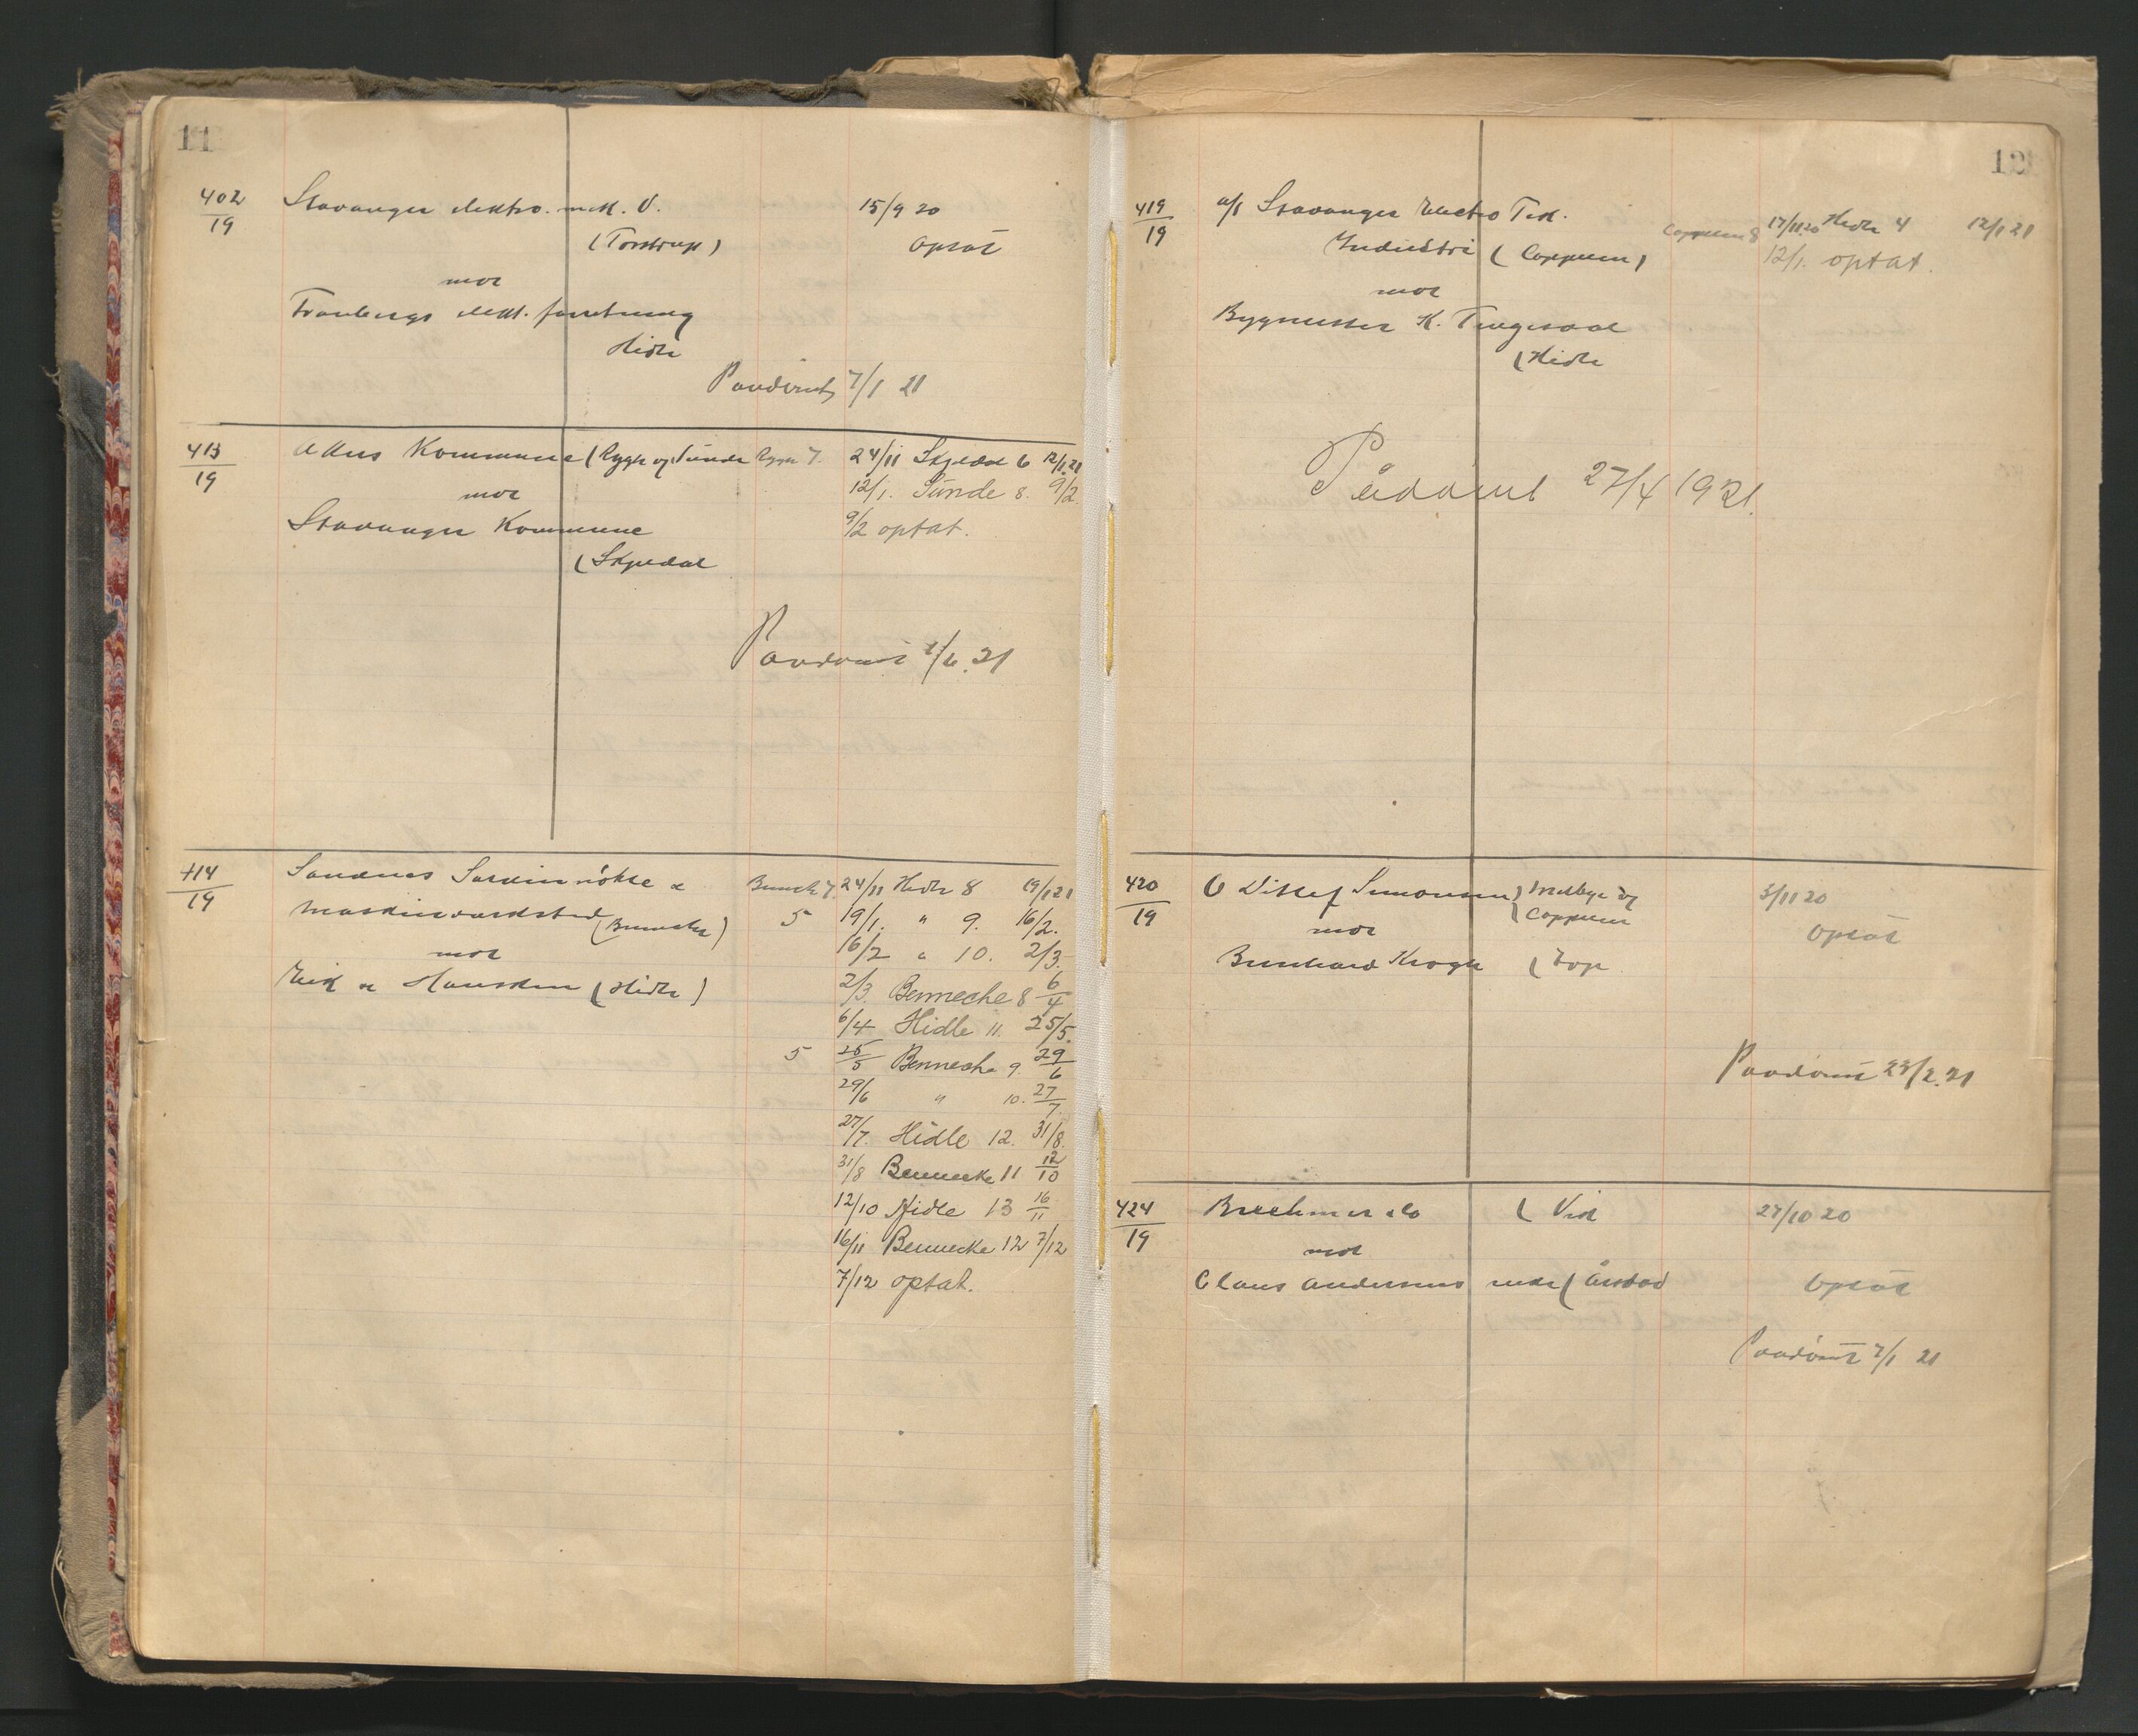 11
402/19 Stavanger elektro. mek. V. 15/9 20
(Torstrup) optat
mot
Tranbergs elekt. forretning
Hidle
Paadømt 7/1 21
413/19 Kommune (Rygh og Sunde Rygh 7. 24/11 Skjedal 6 12/1.21
mot 12/1. Sunde 8. 9/2.
Stavanger Kommune 9/2 optat.
(Skjedal
Paadømt 1/6.21
414/19 Sandnes Sardin & Bennech 7. 24/11 Hidle 8 19/1 21
Maskinverksted (Bennecke) 5 19/1. " 9. 16/2.
mot 16/2 " 10. 2/3.
Eik & Hausken (Hidle) 2/3. Benneche 8 6/4
6/4 Hidle 11. 25/5.
5 25/5 Benneche 9. 29/6
29/6 " 10. 27/7.
27/7. Hidle 12. 31/8.
31/8 Bennecke 11 12/10
12/10 Hidle 13 16/11
16/11 Bennecke 12 7/12
7/12 optat.
12
419/19 a/s Stavanger Electro Tek.
Industri (Coppuen) Coppuen 8 17/11.20 Hidle 4 12/1 21
12/1. optat.
mot
Bygmester K. Tengesdal
(Hidle
Pådømt 27/4 1921.
420/19 O Ditlef Simonsen (Melbye og 3/11 20
Coppuen
mot optat
Bernhard Krogh (
Paadømt 23/2.21
424/19 Brechmer & Co ( 27/10 20
mot
Claus Andersens enke (Årstad optat
Paadømt 7/1 21